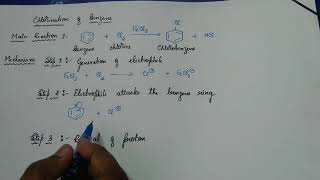 Chlorination of Benzene
Main Reaction :-
Cl
+ Cl₂ FeCl₃ + HCl
Benzene chlorine Chlorobenzene
Mechanism Step 1 :- Generation of electrophile
FeCl₃ + Cl₂ → Cl⊕ + FeCl₄⊖
Step 2 :- Electrophile attacks the benzene ring
+ Cl⊕
Step 3 :- of proton